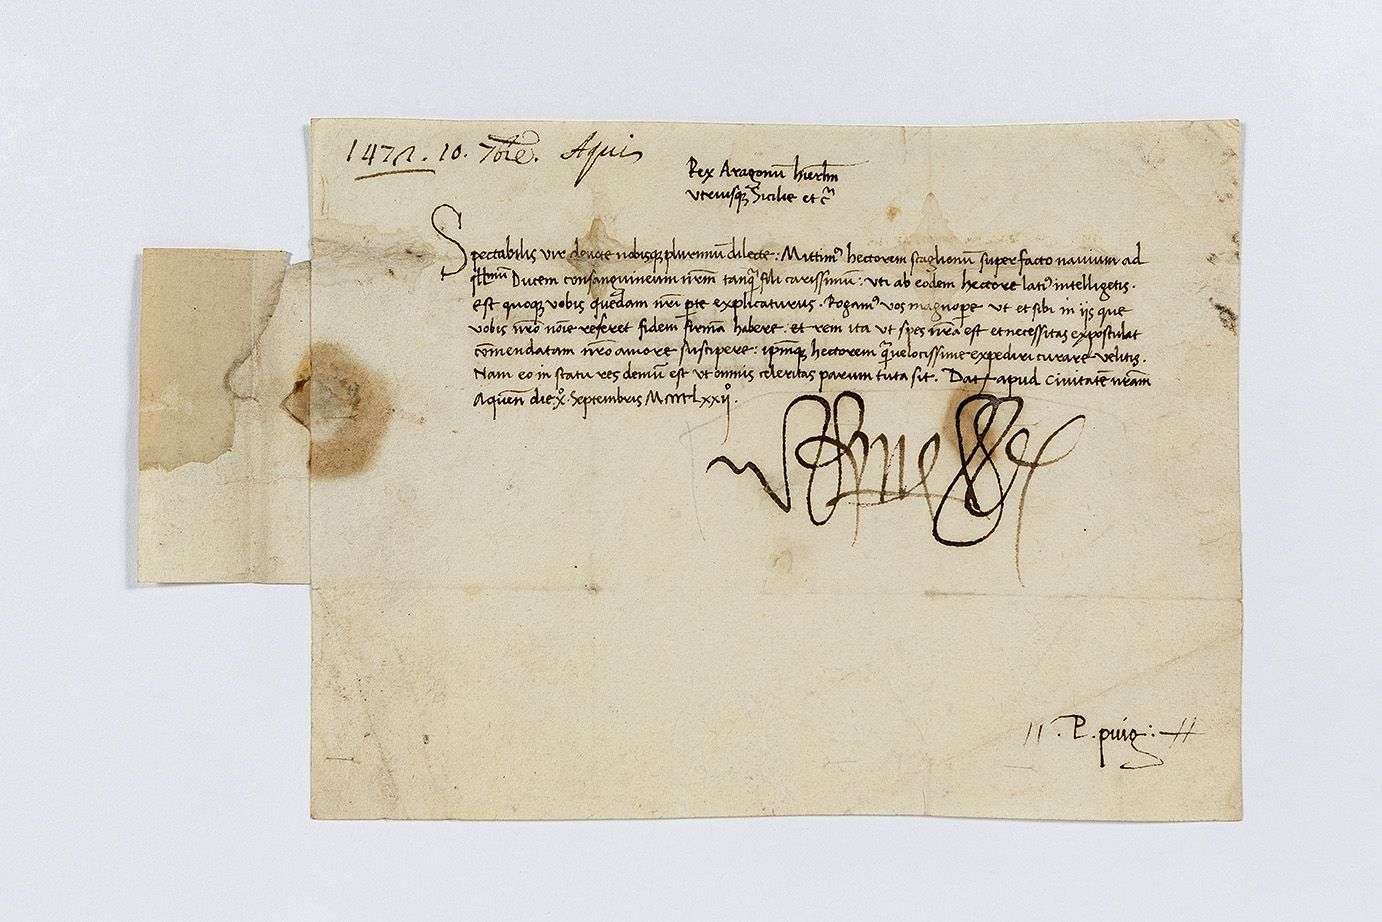 10. Aquis
Rex Aragonũ hierlm̃
vtriusq̨ Sicilie et c̃
Spectabilis vir deuote nobisq̨ plurimum dilecte: Mittimꝰ hectorem staglionũ super facto nauium ad
Ducem consanguineum nr̃m tanq̃ fili carissimũ: vti ab eodem hectore latiꝰ intelligetis.
est quoq̨ vobis quedam nr̃i ꝑte explicaturus. Rogamꝰ vos magnopere vt et sibi in iis que
vobis nr̃o noĩe referet fidem firmã habere: et rem ita vt spes nr̃a est et necessitas expostulat
cõmendatam nr̃o amore suscipere: ipm̃q̨ hectorem q̃uelocissime expediri curare velitis.
Nam eo in statu res demũ est vt omnis celeritas parum tuta sit. Dat apud Ciuitatẽ nr̃am
Aqueñ die x̊. Septembris MccccLxxij̊.
P. puig: